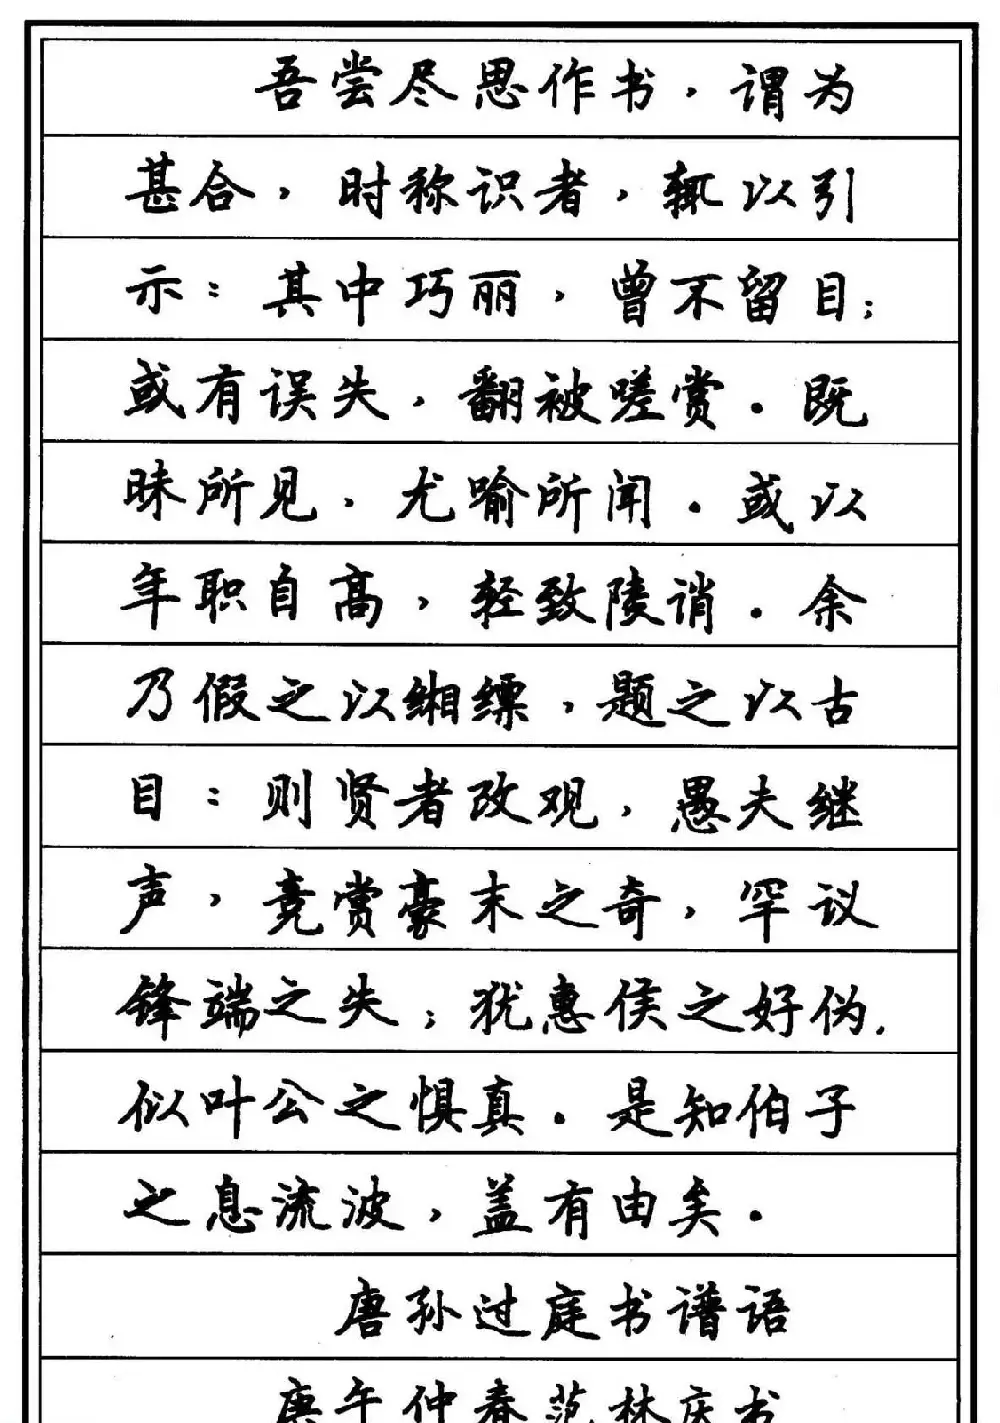 吾尝尽思作书，谓为
甚合，时称识者，辄以引
示：其中巧丽，曾不留目；
或有误失，翻被嗟赏。既
昧所见，尤喻所闻。或以
年职自高，轻致陵诮。余
乃假之以缃缥，题之以古
目：则贤者改观，愚夫继
声，竞赏豪末之奇，罕议
锋端之失；犹惠侯之好伪，
似叶公之惧真。是知伯子
之息流波，盖有由矣。
唐孙过庭书谱语
庚午仲春范林庆书